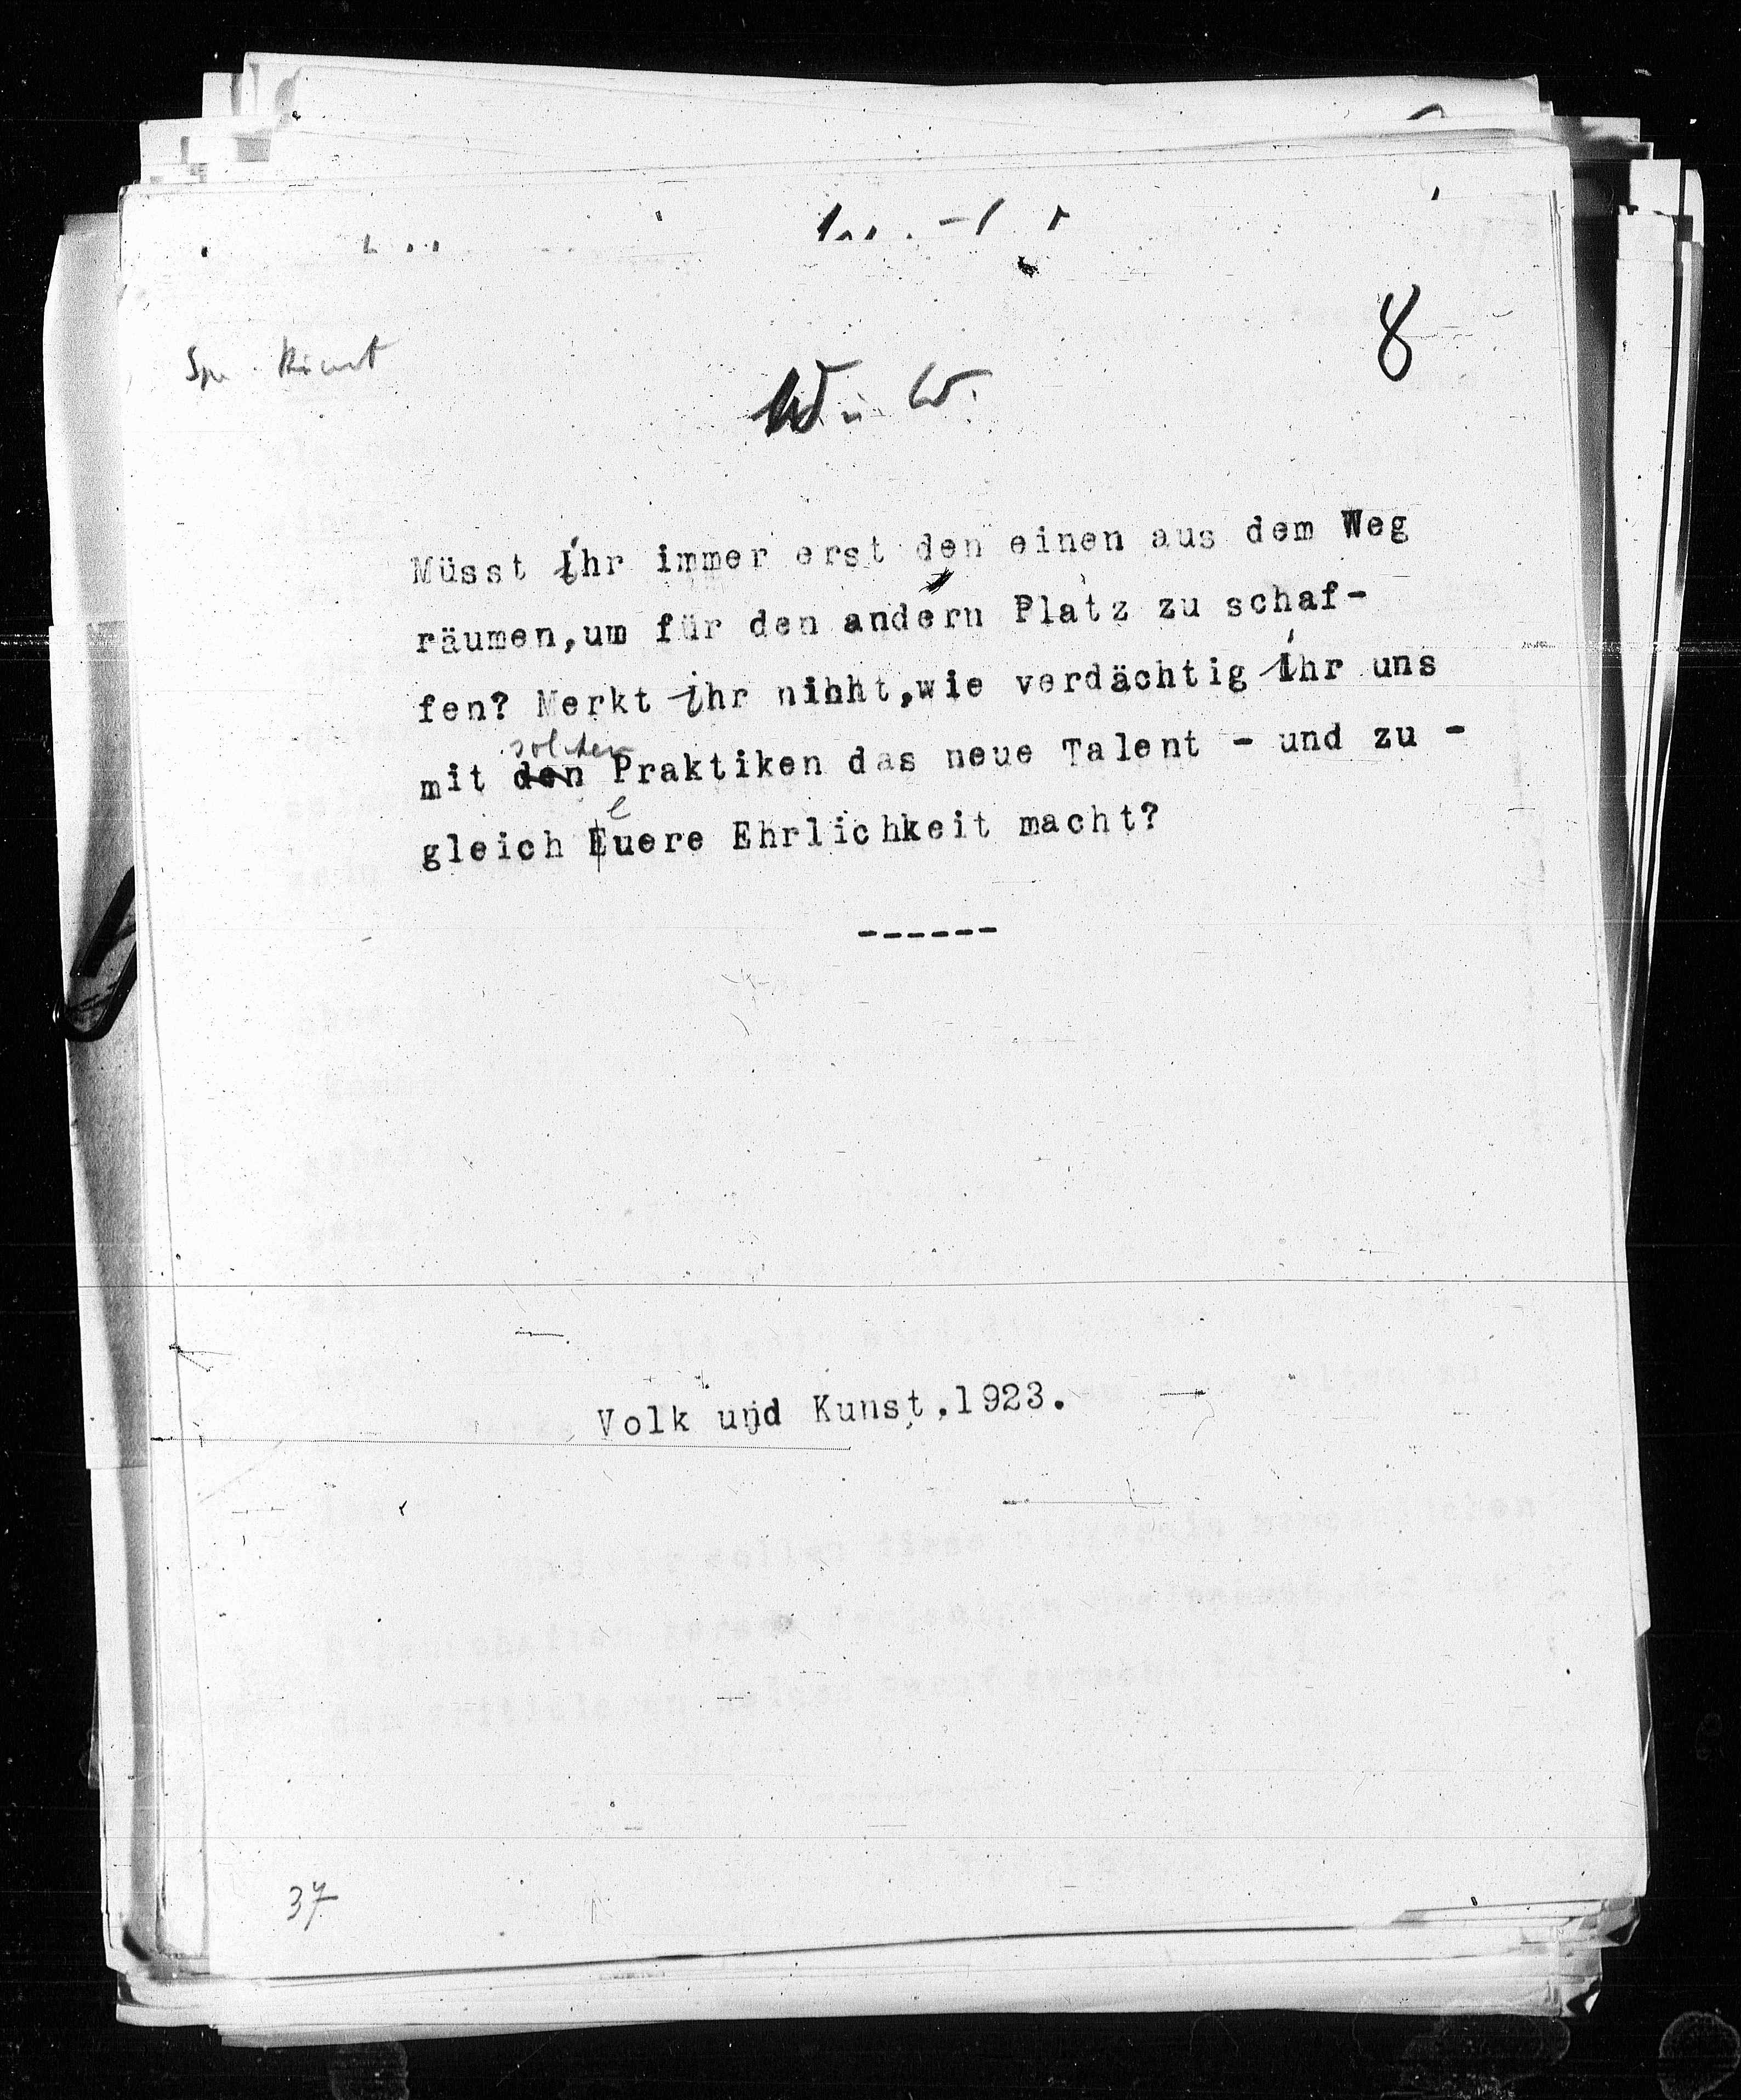 8
W. u. W.
Müsst ihr immer erst den einen aus dem Weg
räumen,um für den andern Platz zu schaf-
fen? Merkt ihr nihht,wie verdächtig ihr uns
solchen
mit den Praktiken das neue Talent - und zu -
gleich euere Ehrlichkeit macht?
------
Volk und Kunst,1923.
37